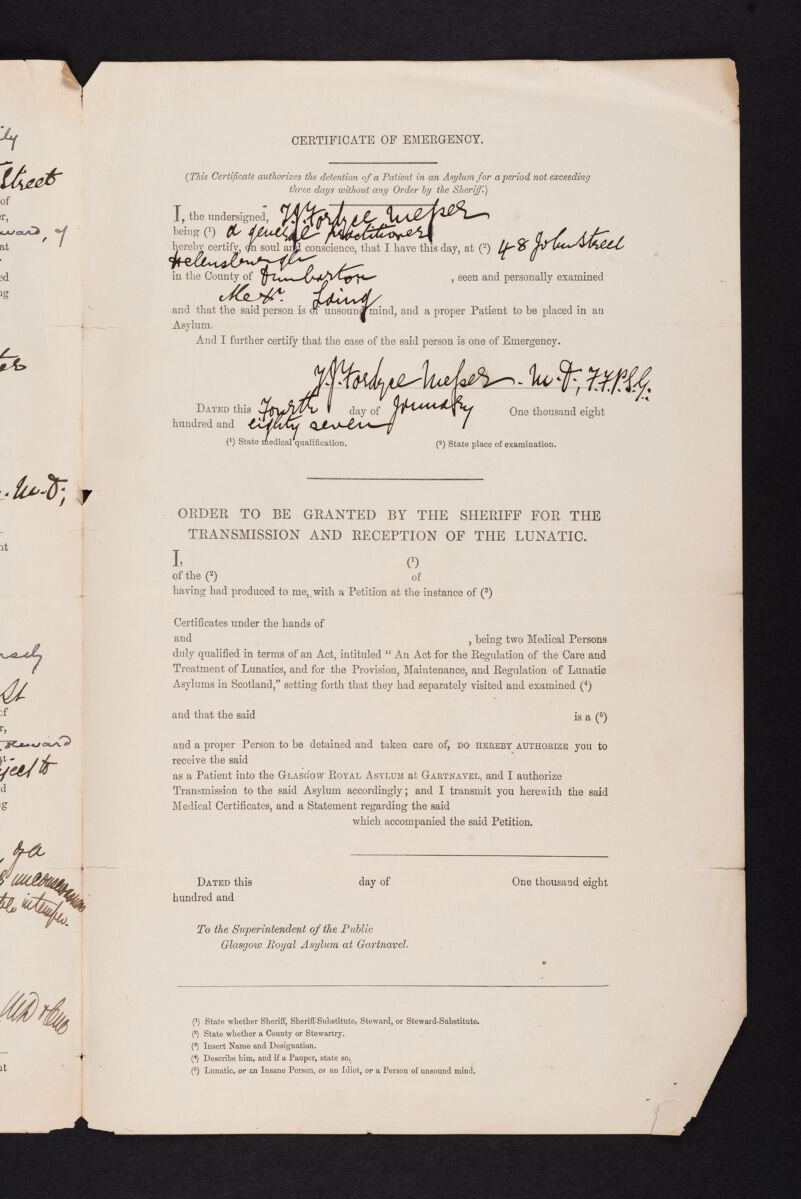 ily
Street
of
r,
ward, of
at
ed
ng
M.D;
nt
St
of
r,
Steward
at
ject to
d
g
of a
CERTIFICATE OF EMERGENCY.
(This Certificate authorizes the detention of a Patient in an Asylum for a period not exceeding
three days without any Order by the Sheriff.)
I, the undersigned, T. J. Fordyce Messer
being (¹) a general practitioner
hereby certify, on soul and conscience, that I have this day, at (²) 48 John Street
Helensburgh
in the County of Dumbarton , seen and personally examined
Alexr. Laing
and that the said person is of unsound mind, and a proper Patient to be placed in an
Asylum.
And I further certify that the case of the said person is one of Emergency.
Fordyce Messer. M.D; F.F.P.S.G.
DATED this Fourth day of January One thousand eight
hundred and eighty seven
(¹) State medical qualification. (²) State place of examination.
ORDER TO BE GRANTED BY THE SHERIFF FOR THE
TRANSMISSION AND RECEPTION OF THE LUNATIC.
I, (¹)
of the (²) of
having had produced to me, with a Petition at the instance of (³)
Certificates under the hands of
and , being two Medical Persons
duly qualified in terms of an Act, intituled " An Act for the Regulation of the Care and
Treatment of Lunatics, and for the Provision, Maintenance, and Regulation of Lunatic
Asylums in Scotland," setting forth that they had separately visited and examined (⁴)
and that the said is a (⁵)
and a proper Person to be detained and taken care of, DO HEREBY AUTHORIZE you to
receive the said
as a Patient into the GLASGOW ROYAL ASYLUM at GARTNAVEL, and I authorize
Transmission to the said Asylum accordingly; and I transmit you herewith the said
Medical Certificates, and a Statement regarding the said
which accompanied the said Petition.
DATED this day of One thousand eight
hundred and
To the Superintendent of the Public
Glasgow Royal Asylum at Gartnavel.
(¹) State whether Sheriff, Sheriff-Substitute, Steward, or Steward-Substitute.
(²) State whether a County or Stewartry.
(³) Insert Name and Designation.
(⁴) Describe him, and if a Pauper, state so.
(⁵) Lunatic, or an Insane Person, or an Idiot, or a Person of unsound mind.